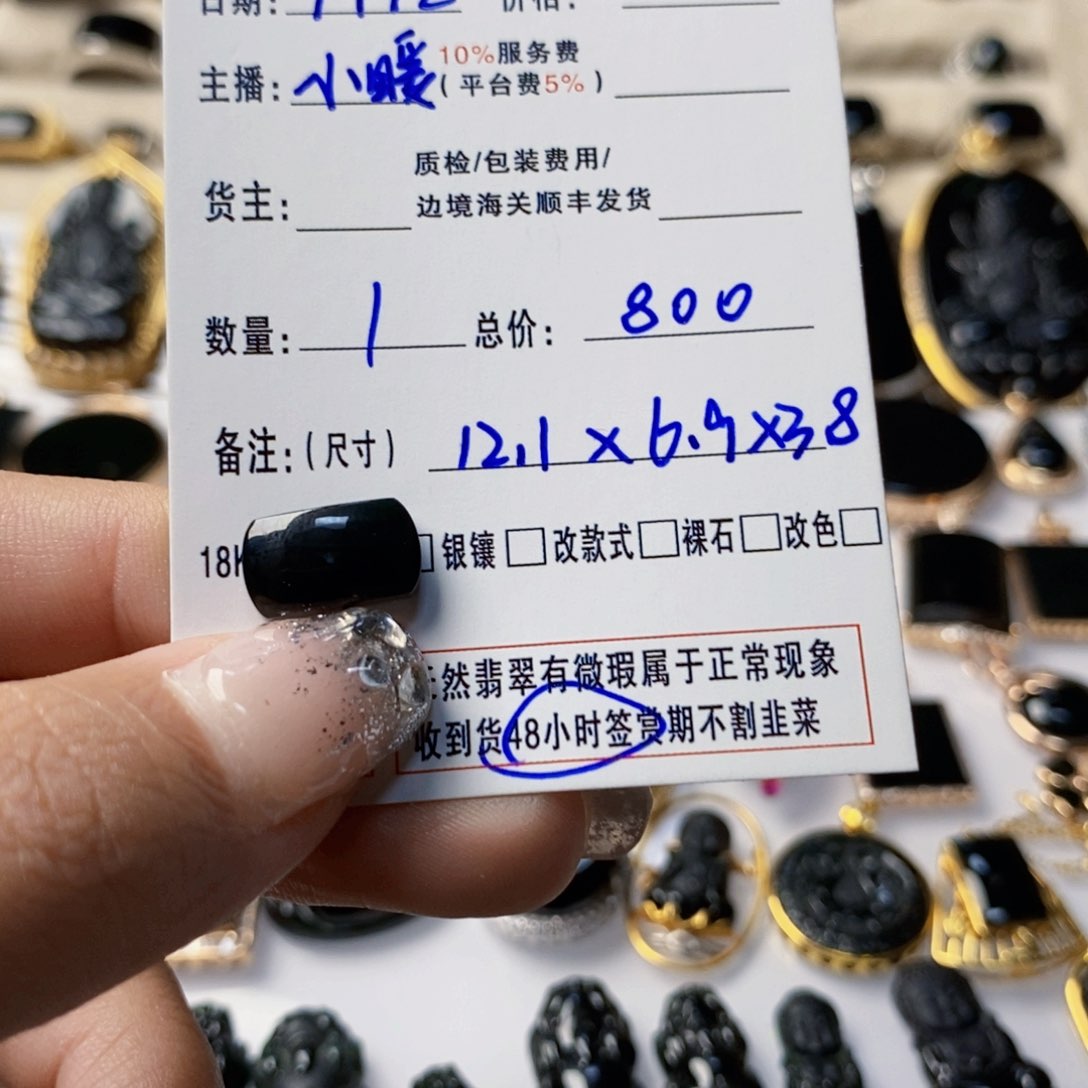 日期: 价格:
主播: 小暖 10%服务费
(平台费5%)
质检/包装费用/
货主: 边境海关顺丰发货
数量: 1 总价: 800
备注:(尺寸) 12.1×6.9×3.8
银镶 改款式 裸石 改色
然翡翠有微瑕属于正常现象
收到货48小时签赏期不割韭菜